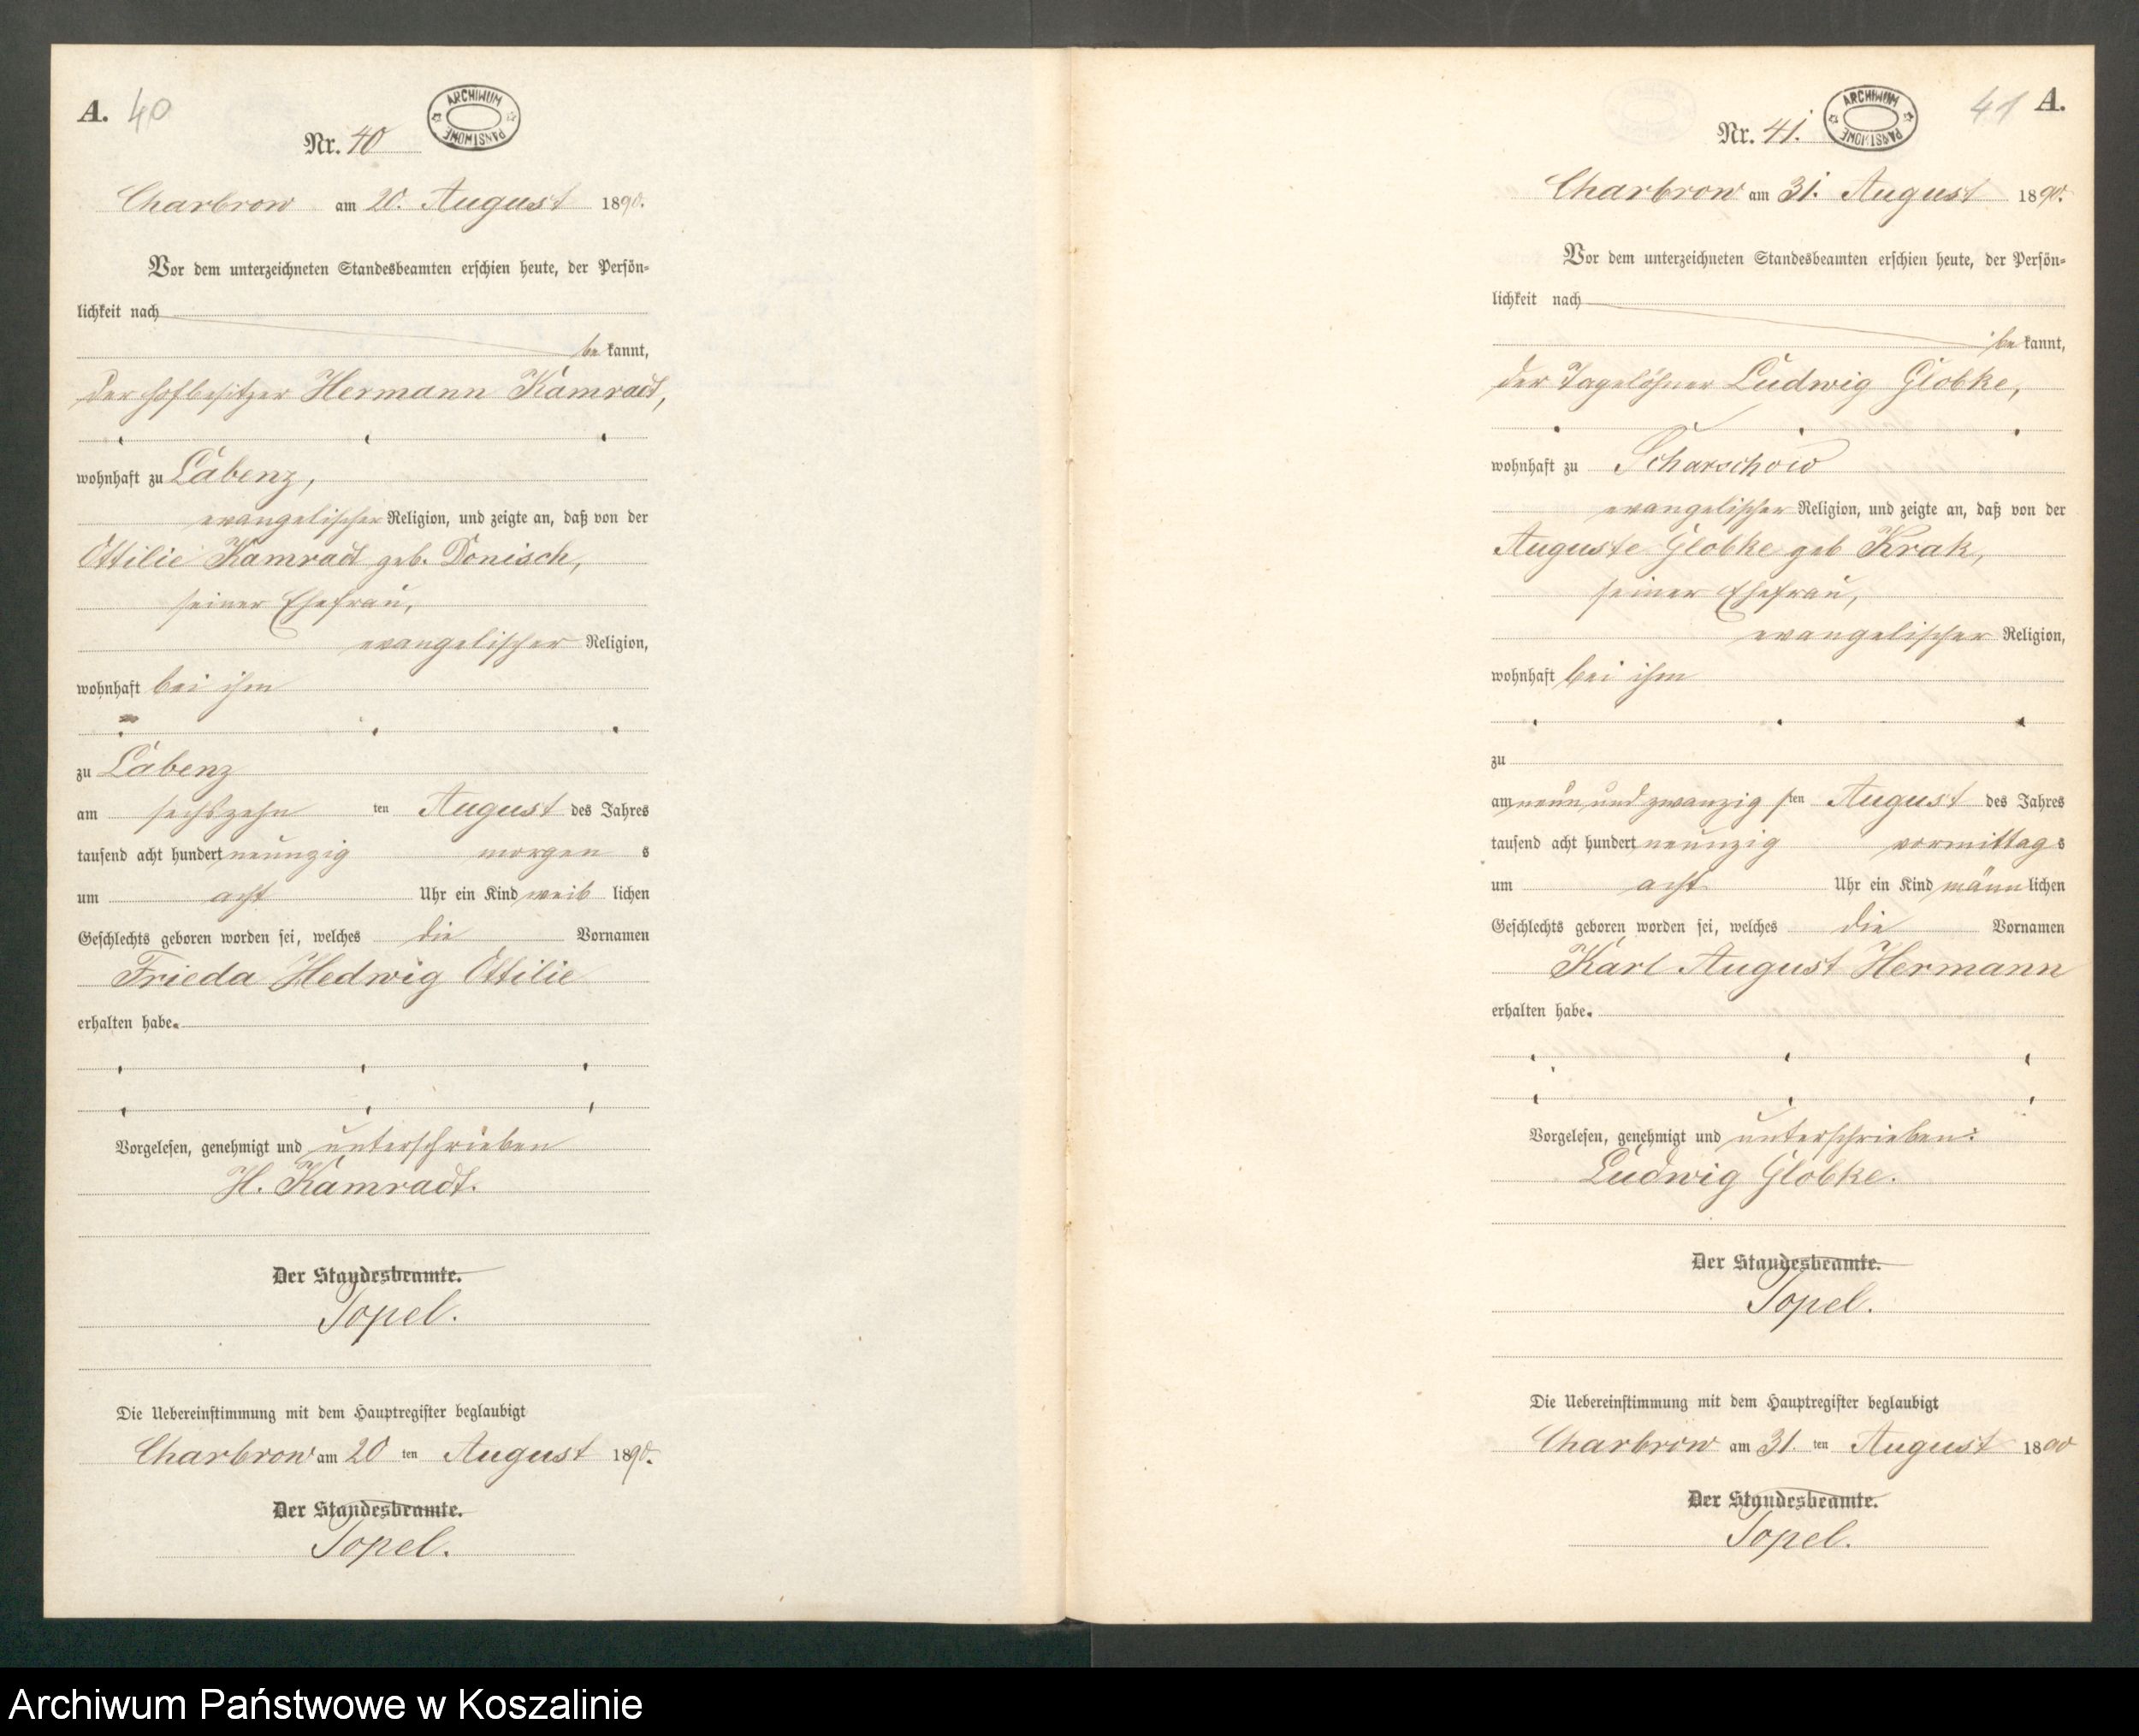 A. 40
ARCHIWUM PAŃSTWOWE
Nr. 40
Charbrow am 20. August 1890.
Vor dem unterzeichneten Standesbeamten erschien heute, der Persön-
lichkeit nach
be kannt,
der Hofbesitzer Hermann Kamradt,
wohnhaft zu Labenz,
evangelischer Religion, und zeigte an, daß von der
Ottilie Kamradt geb. Donisch,
seiner Ehefrau,
evangelischer Religion,
wohnhaft bei ihm
zu Labenz
am sechszehn ten August des Jahres
tausend acht hundert neunzig morgen s
um acht Uhr ein Kind weib lichen
Geschlechts geboren worden sei, welches die Vornamen
Frieda Hedwig Ottilie
erhalten habe.
Vorgelesen, genehmigt und unterschrieben
H. Kamradt.
Der Standesbeamte.
Topel.
Die Uebereinstimmung mit dem Hauptregister beglaubigt
Charbrow am 20 ten August 1890.
Der Standesbeamte.
Topel.
41 A.
ARCHIWUM PAŃSTWOWE
Nr. 41.
Charbrow am 31. August 1890.
Vor dem unterzeichneten Standesbeamten erschien heute, der Persön-
lichkeit nach
be kannt,
der Tagelöhner Ludwig Globke,
wohnhaft zu Scharschow
evangelischer Religion, und zeigte an, daß von der
Auguste Globke geb Krak,
seiner Ehefrau,
evangelischer Religion,
wohnhaft bei ihm
zu
am neun und zwanzig sten August des Jahres
tausend acht hundert neunzig vormittag s
um acht Uhr ein Kind männ lichen
Geschlechts geboren worden sei, welches die Vornamen
Karl August Hermann
erhalten habe.
Vorgelesen, genehmigt und unterschrieben:
Ludwig Globke.
Der Standesbeamte.
Topel.
Die Uebereinstimmung mit dem Hauptregister beglaubigt
Charbrow am 31. ten August 1890
Der Standesbeamte.
Topel.
Archiwum Państwowe w Koszalinie